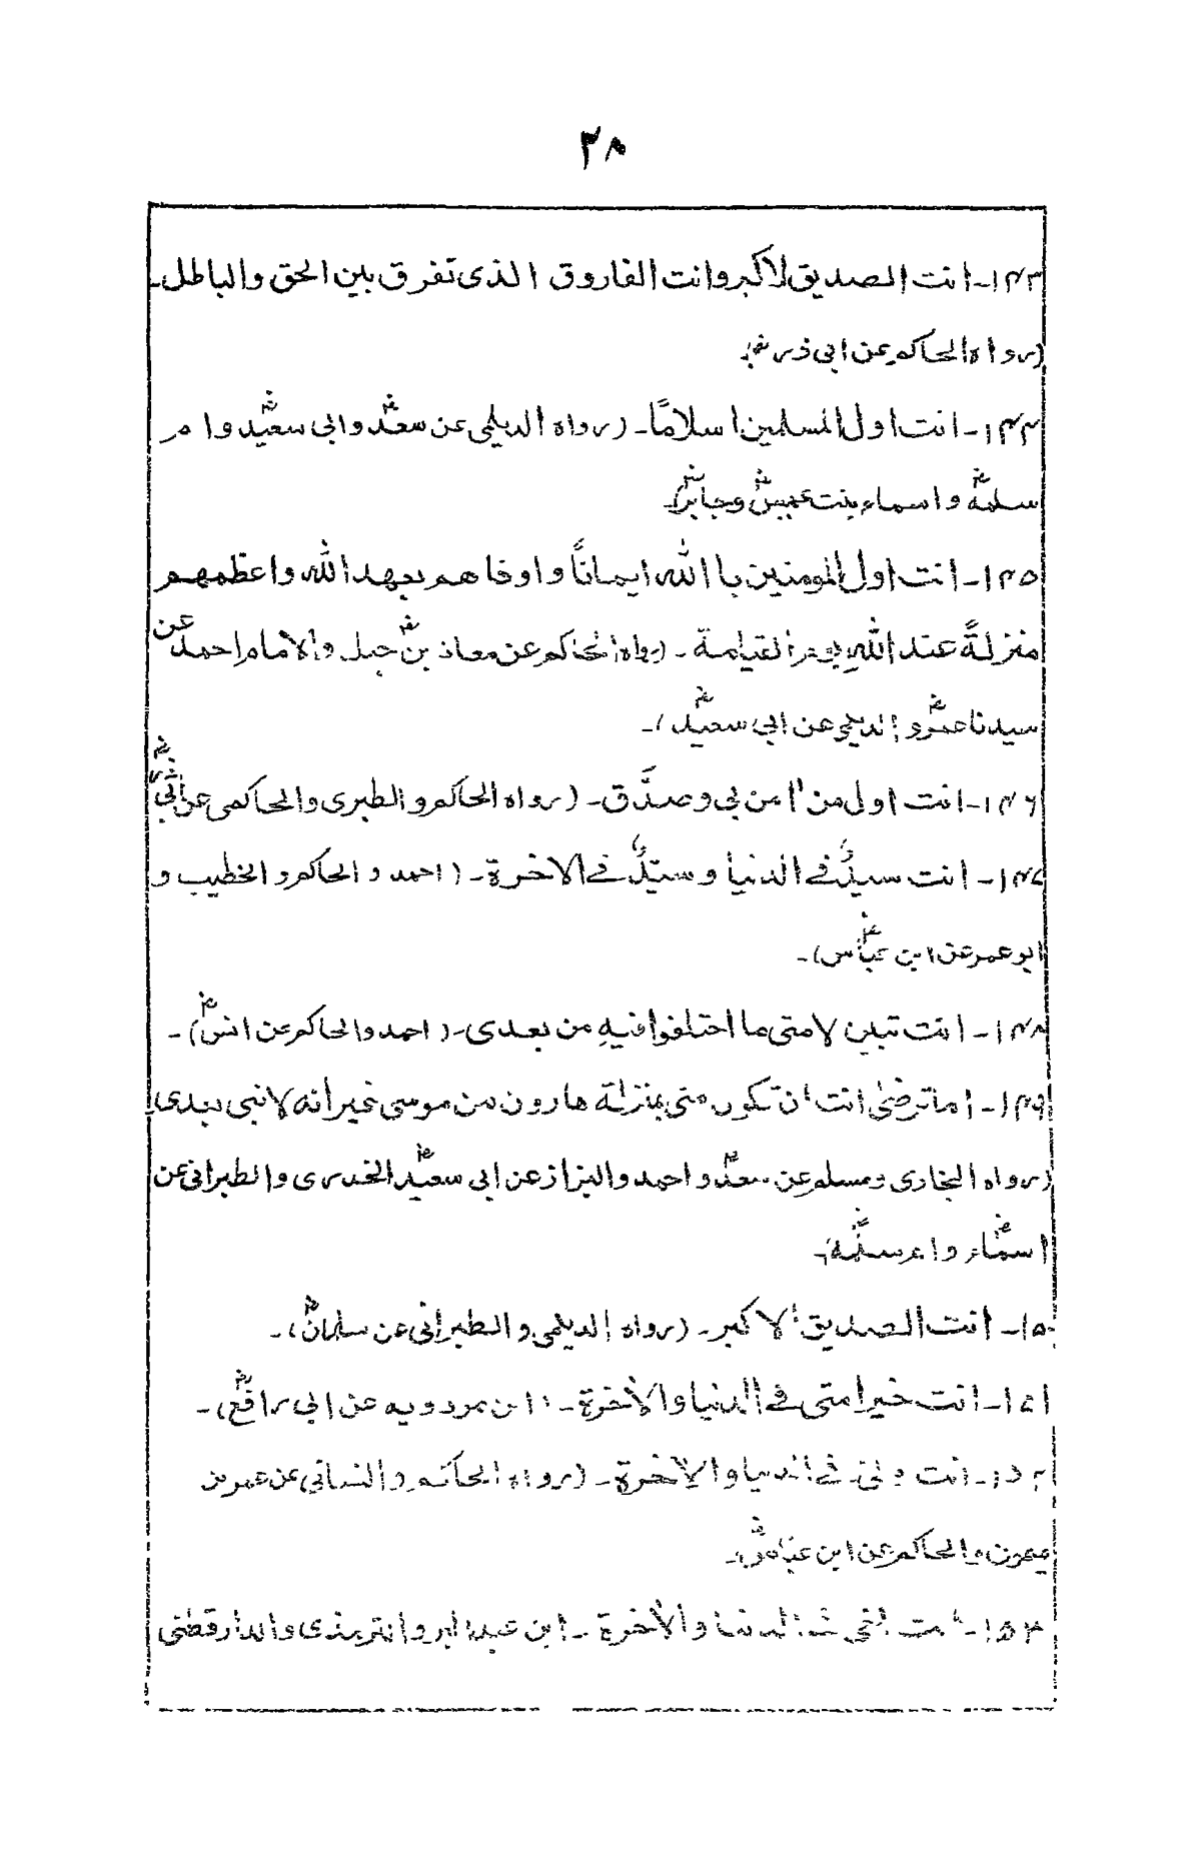 ۳۸
۱۴۳- انت الصدیق الاکبر وانت الفاروق الذی تفرق بین الحق والباطل۔
(رواہ الحاکم عن ابی ذر ؓ)
۱۴۴- انت اول المسلمین اسلامًا۔ (رواہ الدیلمی عن سعدؓ وابی سعیدؓ وام
سلمہؓ و اسماء بنت عمیسؓ وجابرؓ)۔
۱۴۵- انت اول المومنین با اللہ ایمانًا و اوفاھم بعھد اللہ و اعظمھم
منزلۃً عند اللہ یوم القیامۃ۔ (رواہ الحاکم عن معاذ بنؓ جبل والامام احمد عن
سیدنا عمرؓ و الدیلمی عن ابی سعیدؓ)۔
۱۴۶- انت اول من اٰمن بی وصدَّق۔ (رواہ الحاکم والطبری والحاکمی عن
۱۴۷- انت سیدٌ فی الدنیا و سیدٌ فی الاخرۃ۔ (احمد و الحاکم و الخطیب و
ابو عمر عن ابن عباسؓ)۔
۱۴۸- انت تبین لامتی ما اختلفوا فیہِ من بعدی۔ (احمد والحاکم عن انسؓ)۔
۱۴۹- اما ترضیٰ انت ان تکون منی بمنزلۃ ھارون من موسی غیر انہ لا نبی بعدی
(رواہ البخاری ومسلم عن سعدؓ و احمد والبزاز عن ابی سعیدؓ الخدری والطبرانی عن
اسماءؓ و ام سلمۃؓ)۔
۱۵۰- انت الصدیق الاکبر۔ (رواہ الدیلمی و الطبرانی عن سلمانؓ)۔
۱۵۱- انت خیر امتی فی الدنیا والاخرۃ۔ (ابن مردویہ عن ابی رافعؓ)۔
۱۵۲- انت ولی فی الدنیا والاخرۃ۔ (رواہ الحاکم والنسائی عن عمر بن
میمون والحاکم عن ابن عباسؓ)۔
۱۵۳- انت اخی فی الدنیا والاخرۃ۔ ابن عبد البر والترمذی والدارقطنی